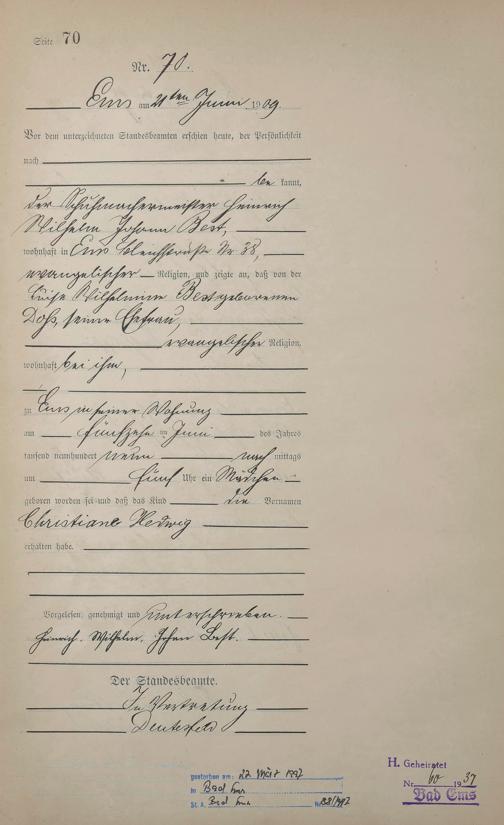 Seite 70
Nr. 70.
Ems am 21ten Juni 1909.
Vor dem unterzeichneten Standesbeamten erschien heute, der Persönlichkeit
nach
be kannt,
der Schuhmachermeister Heinrich
Wilhelm Johann Best,
wohnhaft in Ems Bleichstraße Nr. 38,
evangelischer Religion, und zeigte an, daß von der
Luise Wilhelmine Best geborenen
seiner Ehefrau,
evangelischer Religion,
wohnhaft bei ihm,
zu Ems in seiner Wohnung
am fünfzehn ten Juni des Jahres
tausend neunhundert neun nach mittags
um fünf Uhr ein Mädchen
geboren worden sei und daß das Kind die Vornamen
Christiane Hedwig
erhalten habe.
Vorgelesen, genehmigt und unterschrieben.
Heinrich. Wilhelm. Johan Best.
Der Standesbeamte.
In Vertretung
gestorben am: 22. März 1997
in Bad Ems
St. A. Bad Ems Nr.
H. Geheiratet
Nr. 60 1937
Bad Ems